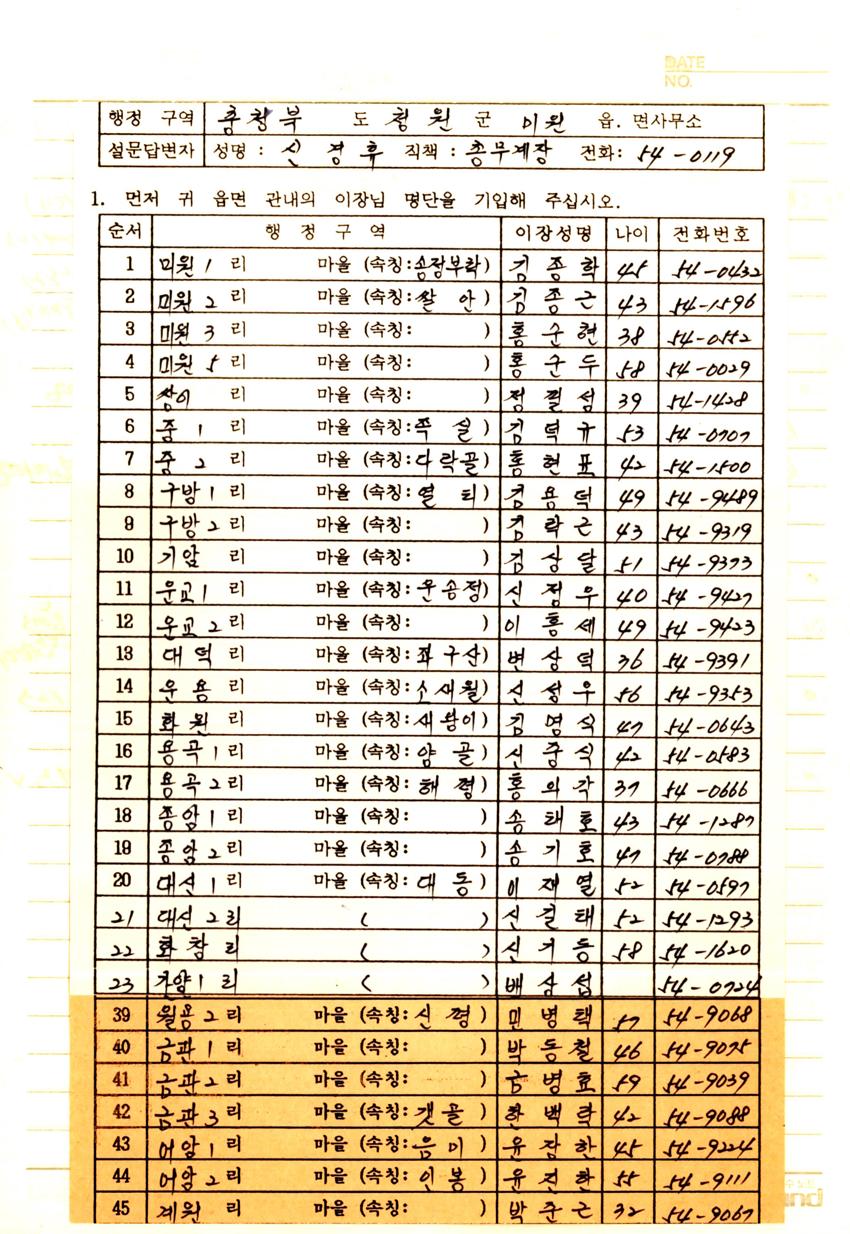 DATE
NO.
행정 구역 충청북 도 청원 군 미원 읍. 면사무소
설문답변자 성명 : 신경휴 직책 : 총무계장 전화: 54-0119
1. 먼저 귀 읍면 관내의 이장님 명단을 기입해 주십시오.
순서 행 정 구 역 이장성명 나이 전화번호
1 미원 1 리 마을 (속칭: 송정부락) 김종학 45 54-0432
2 미원 2 리 마을 (속칭: 쌀 안) 김종근 43 54-1596
3 미원 3 리 마을 (속칭: ) 홍순현 38 54-0552
4 미원 5 리 마을 (속칭: ) 홍군두 58 54-0029
5 쌍이 리 마을 (속칭: ) 정필섭 39 54-1428
6 종 1 리 마을 (속칭: 쪽 실) 김덕규 53 54-0707
7 종 2 리 마을 (속칭: 다락골) 홍현표 42 54-1500
8 구방 1 리 마을 (속칭: 열 티) 김용덕 49 54-9489
9 구방 2 리 마을 (속칭: ) 김락근 43 54-9319
10 기암 리 마을 (속칭: ) 김상달 51 54-9373
11 운교 1 리 마을 (속칭: 운송정) 신정우 40 54-9427
12 운교 2 리 마을 (속칭: ) 이홍세 49 54-9423
13 대덕 리 마을 (속칭: 좌구산) 변상덕 36 54-9391
14 운용 리 마을 (속칭: 소새월) 신성우 56 54-9353
15 화원 리 마을 (속칭: 새왕이) 김명식 47 54-0643
16 용곡 1 리 마을 (속칭: 얌 골) 신중식 42 54-0583
17 용곡 2 리 마을 (속칭: 해 평) 홍의각 37 54-0666
18 종암 1 리 마을 (속칭: ) 송태호 43 54-1287
19 종암 2 리 마을 (속칭: ) 송기호 47 54-0788
20 대신 1 리 마을 (속칭: 대 동) 이재열 52 54-0597
21 대신 2 리 ( ) 신길태 52 54-1293
22 화창 리 ( ) 신기동 58 54-1620
23 가양 1 리 ( ) 배상섭 54-0724
39 월용 2 리 마을 (속칭: 신 평) 민병택 57 54-9068
40 금관 1 리 마을 (속칭: ) 박동철 46 54-9075
41 금관 2 리 마을 (속칭: ) 금병효 59 54-9039
42 금관 3 리 마을 (속칭: 갯골) 한백락 42 54-9088
43 어암 1 리 마을 (속칭: 음미) 윤참한 45 54-9224
44 어암 2 리 마을 (속칭: 인 봉) 윤진한 55 54-9111
45 계원 리 마을 (속칭: ) 박준근 32 54-9067